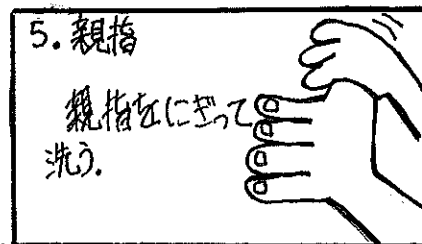 5. 親指
親指をにぎって
洗う.